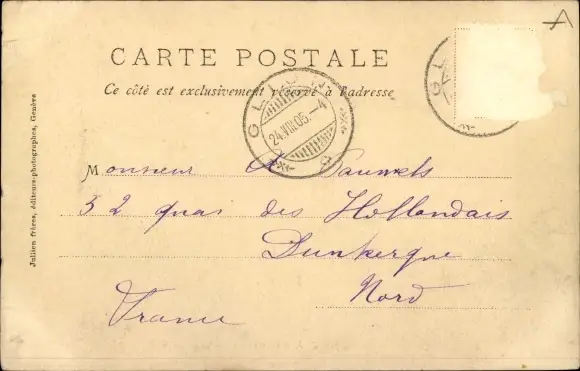 A
CARTE POSTALE
Ce côté est exclusivement réservé à l'adresse
GLI
24.VIII.05.–4
GL
Monsieur A Pauwels
32 quai des Hollandais
Dunkerque
Nord
France
Jullien frères, éditeurs-photographes, Genève